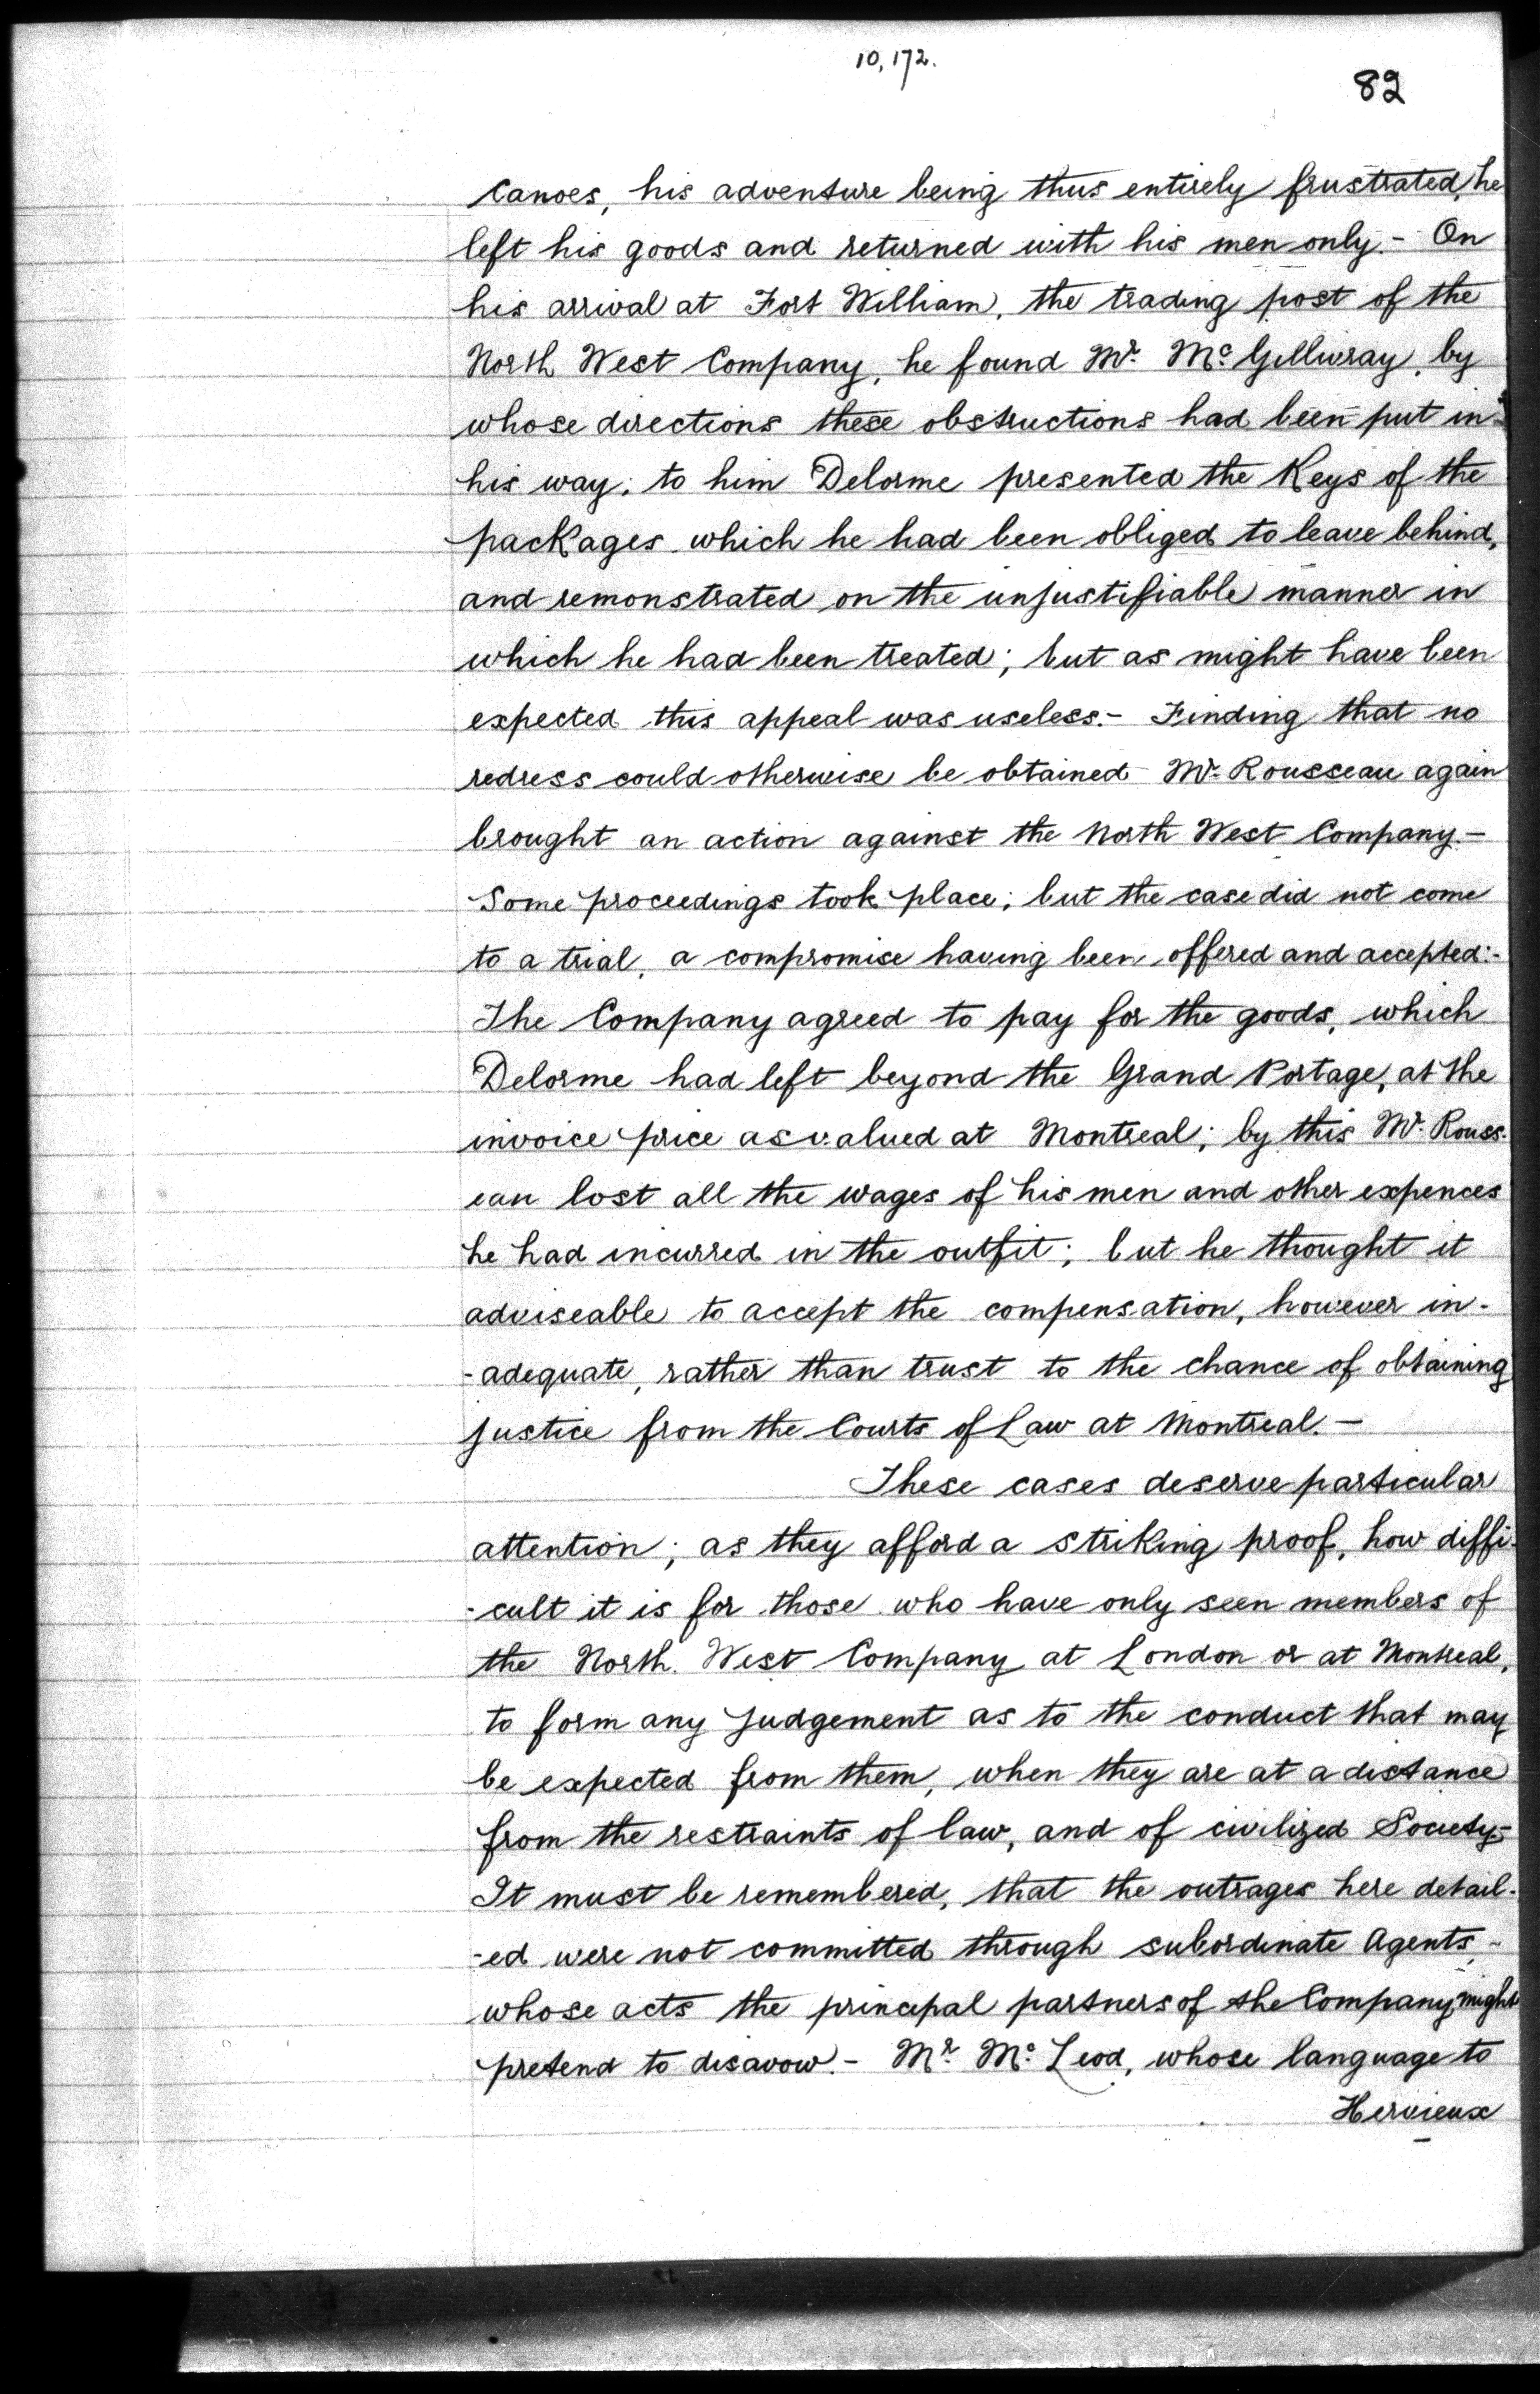 10,172.
82
Canoes, his adventure being thus entirely frustrated, he
left his goods and returned with his men only.- On
his arrival at Fort William, the trading post of the
North West Company, he found Mr. Mc. Gillivray, by
whose directions these obstructions had been put in
his way; to him Delorme presented the Keys of the
packages which he had been obliged to leave behind,
and remonstrated on the unjustifiable manner in
which he had been treated; but as might have been
expected this appeal was useless.- Finding that no
redress could otherwise be obtained Mr. Rousseau again
brought an action against the North West Company.-
Some proceedings took place; but the case did not come
to a trial, a compromise having been offered and accepted:-
The Company agreed to pay for the goods, which
Delorme had left beyond the Grand Portage, at the
invoice price as valued at Montreal; by this Mr. Rouss-
eau lost all the wages of his men and other expences
he had incurred in the outfit; but he thought it
adviseable to accept the compensation, however in-
-adequate, rather than trust to the chance of obtaining
justice from the Courts of Law at Montreal.-
These cases deserve particular
attention; as they afford a striking proof, how diffi-
-cult it is for those who have only seen members of
the North West Company at London or at Montreal,
to form any judgement as to the conduct that may
be expected from them, when they are at a distance
from the restraints of law, and of civilized Society-
It must be remembered, that the outrages here detail-
-ed were not committed through subordinate Agents,-
whose acts the principal partners of the Company might
pretend to disavow.- Mr. Mc. Leod, whose language to
Hervieux